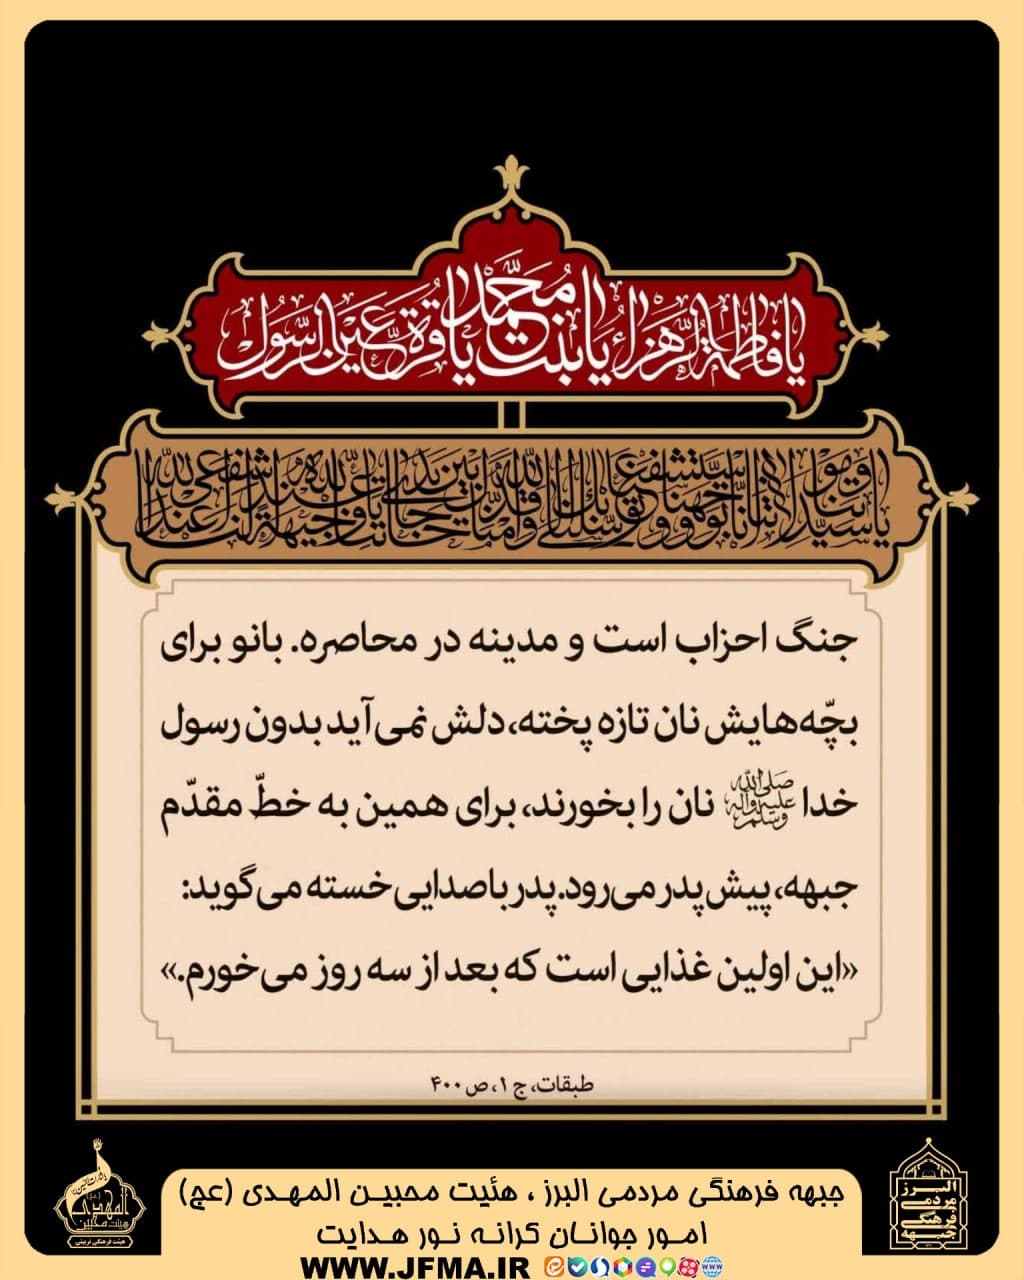 يا فاطمة الزهراء يا بنت محمّد يا قرة عين الرسول
يا سيدتنا و مولاتنا انا توجهنا و استشفعنا و توسلنا بك الى الله و قدمناك بين يدي حاجاتنا يا وجيهة عند الله اشفعي لنا عند الله
جنگ احزاب است و مدینه در محاصره. بانو برای
بچّه‌هایش نان تازه پخته، دلش نمی‌آید بدون رسول
خدا صلی الله علیه وآله وسلم نان را بخورند، برای همین به خطّ مقدّم
جبهه، پیش پدر می‌رود. پدر با صدایی خسته می‌گوید:
«این اولین غذایی است که بعد از سه روز می‌خورم.»
طبقات، ج ۱، ص ۴۰۰
جبهه فرهنگی مردمی البرز ، هئیت محبین المهدی (عج)
امور جوانان کرانه نور هدایت
WWW.JFMA.IR
البرز
مردمی
فرهنگی
جبهه
المهدی
هیئت محبین